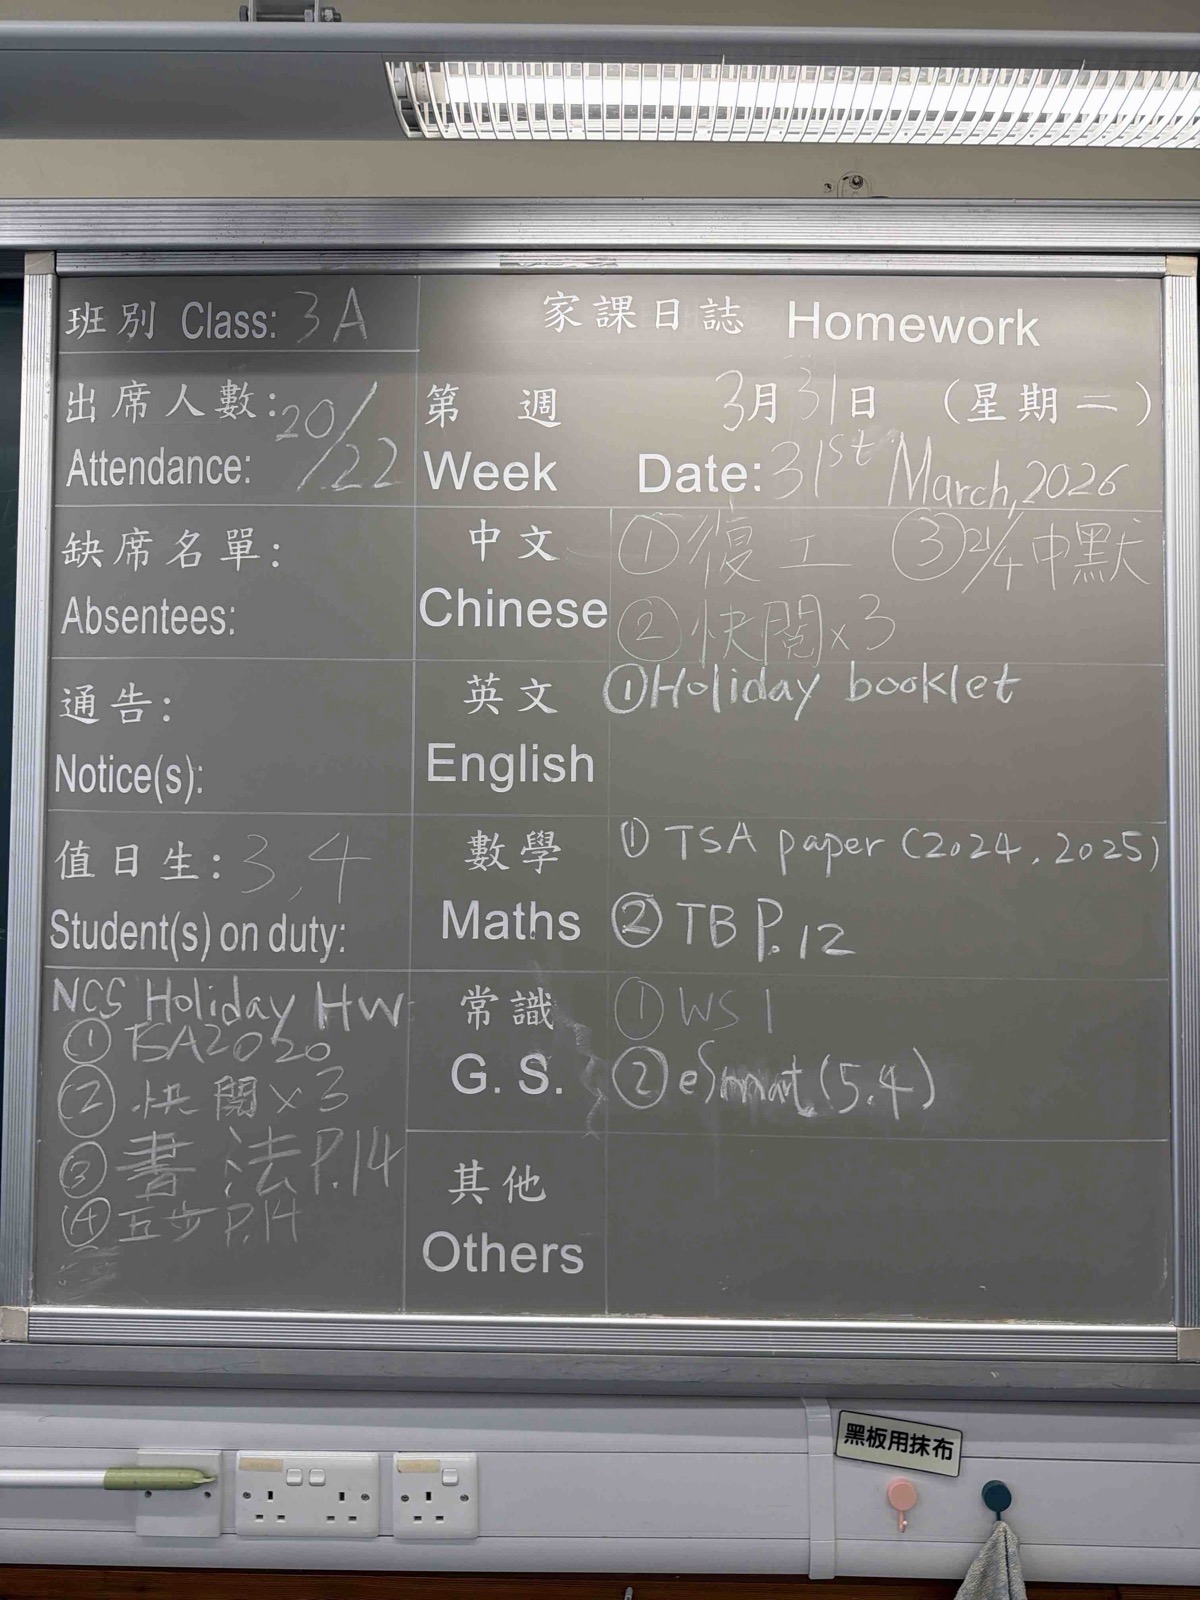 班別 Class: 3A
家課日誌 Homework
出席人數: 20/22
Attendance:
第 週 3月31日 (星期二)
Week Date: 31st March, 2026
缺席名單:
Absentees:
中文 ①復工 ③21/4中默
Chinese ②快閱x3
通告:
Notice(s):
英文 ①Holiday booklet
English
值日生: 3,4
Student(s) on duty:
數學 ① TSA paper (2024, 2025)
Maths ② TB P.12
NCS Holiday HW
① TSA2020
② 快閱x3
③ 書法P.14
④ 五步P.14
常識 ① WS 1
G. S. ② eSmart (5.4)
其他
Others
黑板用抹布